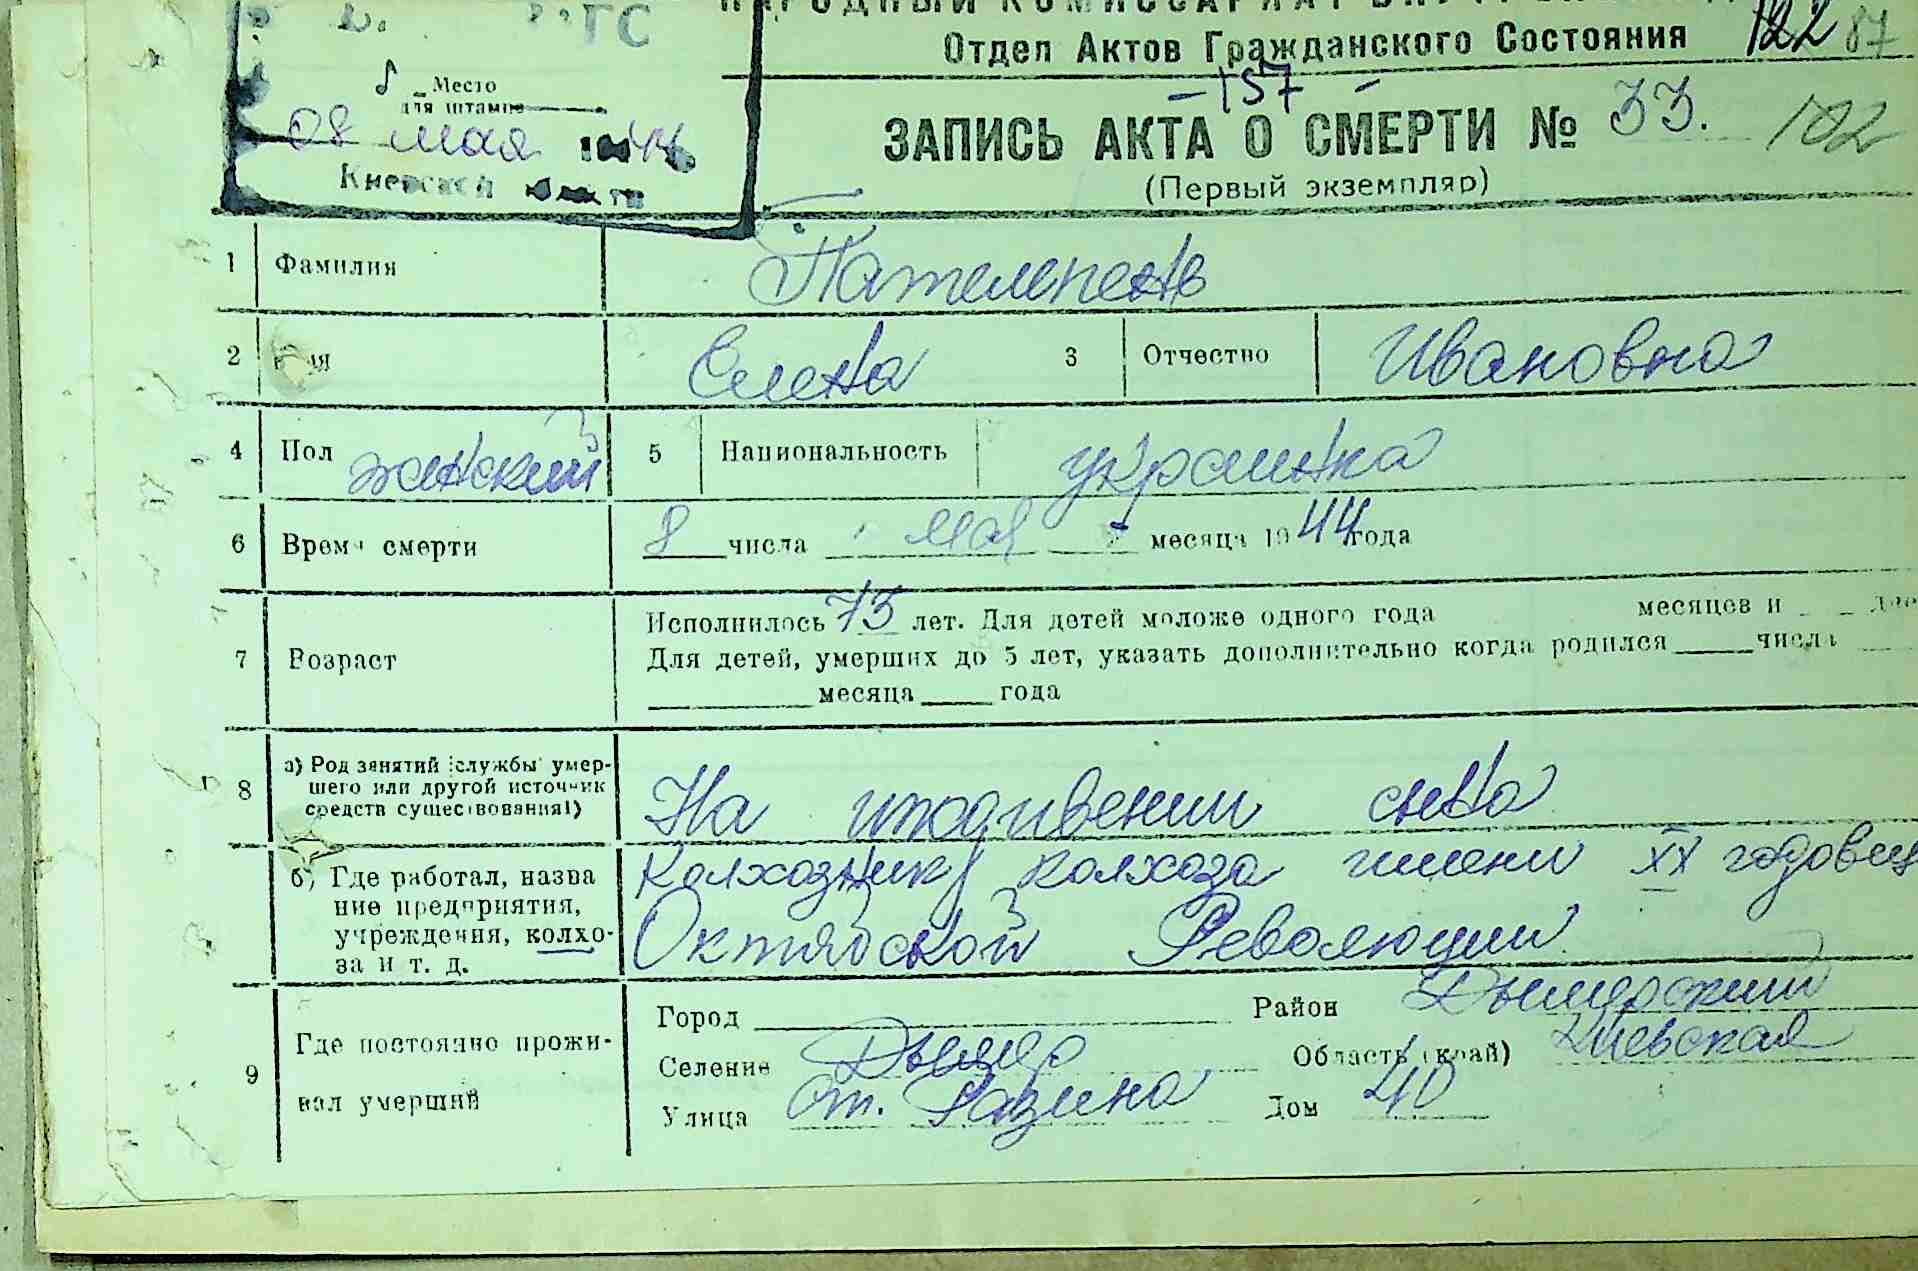 Отдел Актов Гражданского Состояния 122 87
Место
для штампа
08 мая 1944
Киевской
- 157 -
ЗАПИСЬ АКТА О СМЕРТИ № 33. 102
(Первый экземпляр)
1 Фамилия
2 Елена 3 Отчество Ивановна
4 Пол женский 5 Национальность украинка
6 Время смерти 8 числа мая месяца 1944 года
7 Возраст
Исполнилось 73 лет. Для детей моложе одного года месяцев и
Для детей, умерших до 5 лет, указать дополнительно когда родился числа
месяца года
8 а) Род занятий (службы) умер-
шего или другой источник
средств существования1)
На иждивении сына
б) Где работал, назва
ние предприятия,
учреждения, колхо-
за и т. д.
колхозник колхоза имени ХХ годовщ
Октябской Революции
9 Где постоянно прожи-
вал умерший
Город Район Дымерский
Селение Дымер Область (край) Киевская
Улица Ст. Разина Дом 40